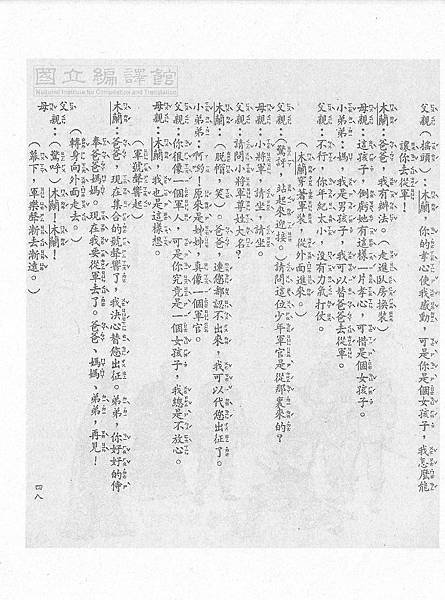 國立編譯館
National Institute for Compilation and Translation
父親（搖頭）：木蘭，你的孝心使我感動，可是你是個女孩子，我怎麼能
讓你去從軍！
木蘭：爸爸，我有辦法。（走進臥房換裝）
母親：這孩子，倒虧她有這樣一片孝心，可惜是個女孩子。
小弟弟：媽，我是男孩子，我可以替爸爸去從軍。
父親：不行，你年紀太小，沒有力氣打仗。
（木蘭穿著軍裝，從外面進來。）
父親：（驚訝，站起來迎接。）請問這位少年軍官是從那裏來的？
母親：小將軍，請坐，請坐。
父親：請問小將軍尊姓大名？
木蘭：（脫帽，笑）。爸爸，連您都認不出來，我可以代您出征了。
小弟弟：啊喲！原來是姊姊，真像一個軍官。
父親：你很像一個軍人，可是你究竟是一個女孩子，我總是不放心。
母親：木蘭，我也是這樣想。
（軍號聲響起）
木蘭：爸爸，現在集合的號聲響了，我決心替您出征。弟弟，你好好的侍
奉爸爸媽媽。現在我要從軍去了。爸爸、媽媽、弟弟，再見！
（轉身向外面走去。）
父親：（驚呼）木蘭！木蘭！
母親
（幕下，軍樂聲漸去漸遠。）
四八